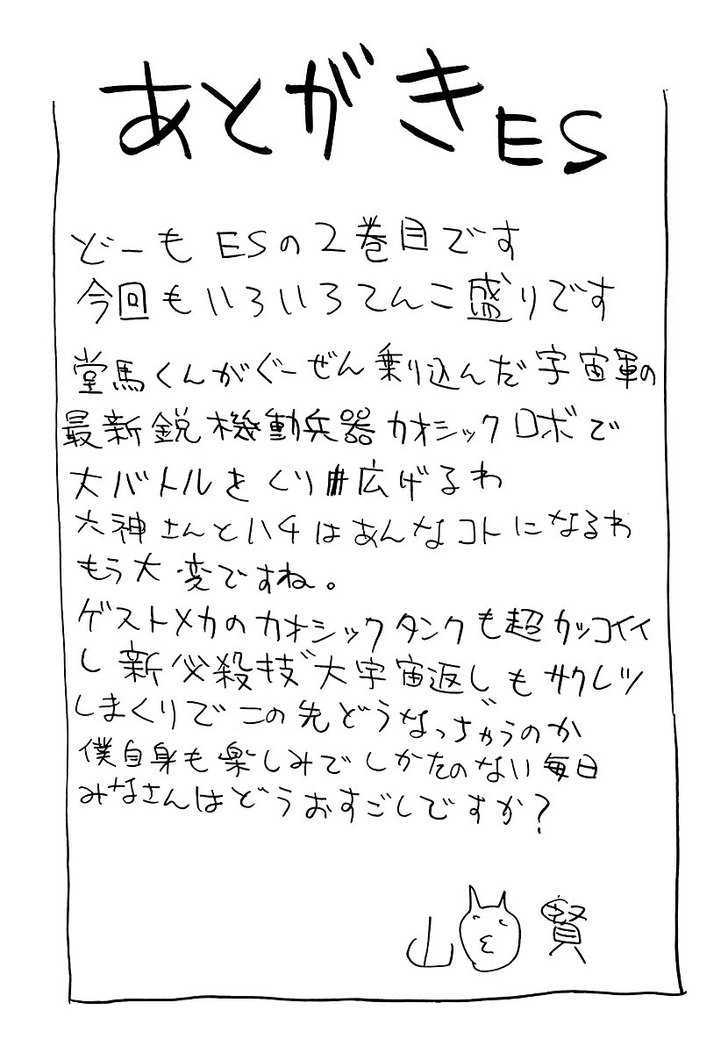 あとがきES
どーもESの2巻目です
今回もいろいろてんこ盛りです
堂馬くんがぐーぜん乗り込んだ宇宙軍の
最新鋭機動兵器カオシックロボで
大バトルをくり広げるわ
六神さんとハチはあんなコトになるわ
もう大変ですね。
ゲストメカのカオシックタンクも超カッコイイ
し新必殺技“大宇宙返し”もサクレツ
しまくりでこの先どうなっぢゃうのか
僕自身も楽しみでしかたのない毎日
みなさんはどうおすごしですか?
山 賢